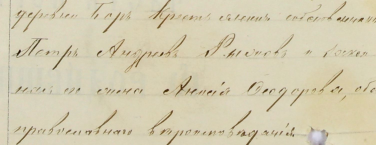 деревни Боръ Крестьянинъ собственникъ
Петръ Андреевъ Рысковъ и закон
ная его жена Анна Ѳеодоровна, оба
православнаго вѣроисповѣданія